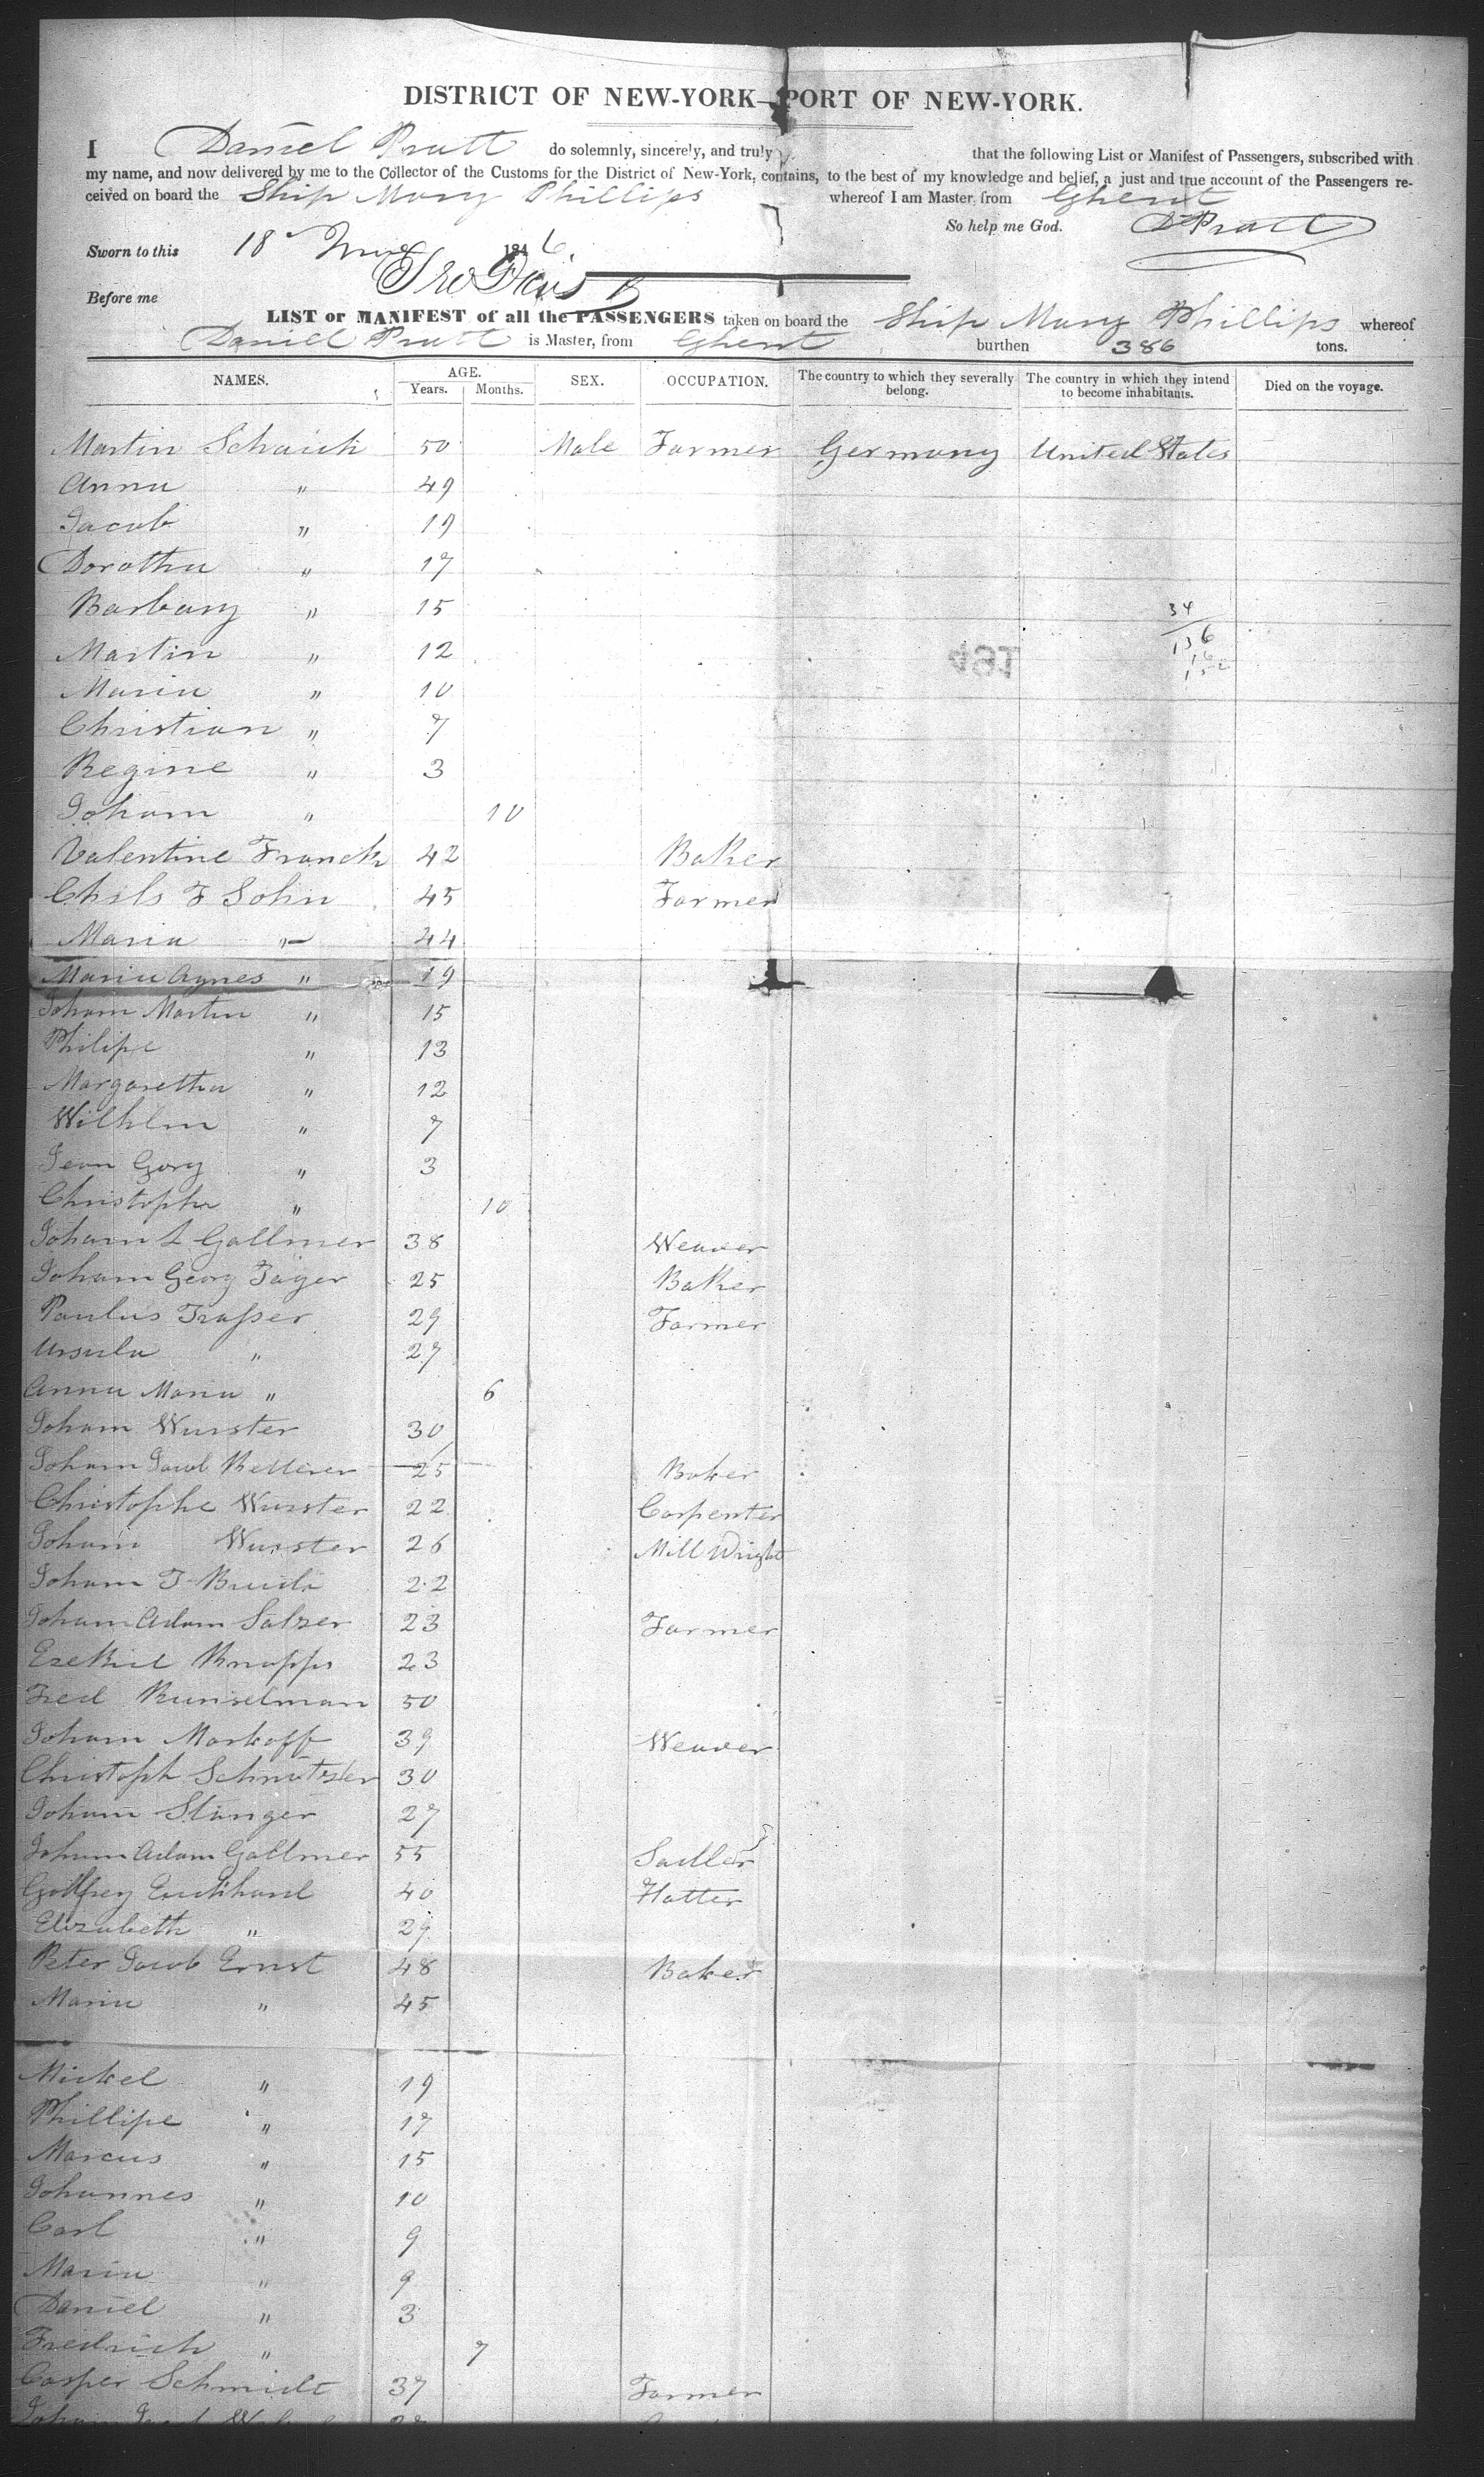 DISTRICT OF NEW-YORK—PORT OF NEW-YORK.
I Daniel Pratt do solemnly, sincerely, and truly that the following List or Manifest of Passengers, subscribed with
my name, and now delivered by me to the Collector of the Customs for the District of New-York, contains, to the best of my knowledge and belief, a just and true account of the Passengers re-
ceived on board the Ship Mary Phillips whereof I am Master, from Ghent
So help me God. D Pratt
Sworn to this 18 1846
Before me
LIST or MANIFEST of all the PASSENGERS taken on board the Ship Mary Phillips whereof
Daniel Pratt is Master, from Ghent burthen 386 tons.
NAMES. AGE. Years. Months. SEX. OCCUPATION. The country to which they severally belong. The country in which they intend to become inhabitants. Died on the voyage.
Martin Schaich 50 Male Farmer Germany United States
Anna " 49
Jacob " 19
Dorothea " 17
Barbary " 15
34
Martin " 12
136
16
152
Maria " 10
Christian " 7
Regine " 3
Joham " 10
Valentine Franck 42 Baker
Chrls F Sohn 45 Farmer
Maria " 44
Maria Agnes " 19
Joham Martin " 15
Philipe " 13
Margaretha " 12
Wilhlm " 7
Jean Gorg " 3
Christophe " 10
Joham L Gallmer 38 Weaver
Joham Georg Jager 25 Baker
Paulus Trasser 29 Farmer
Ursula " 27
Anna Maria " 6
Joham Wurster 30
Joham Jacob 25 Baker
Christophe Wurster 22 Carpenter
Joham Wurster 26 Mill Wright
Joham J 22
Joham Adam Salzer 23 Farmer
Ezekiel Knapps 23
Fred Kunselman 50
Joham Markoff 39 Weaver
Christoph 30
Joham Stanger 27
Joham Adam Gallmer 55 Sadler
Godfrey 40 Hatter
Elizabeth " 29
Peter Jacob Ernst 48 Baker
Maria " 45
Mickel " 19
Phillipe " 17
Marcus " 15
Johannes " 10
Carl " 9
Maria " 9
Daniel " 3
Fredrich " 7
Casper Schmidt 37 Farmer